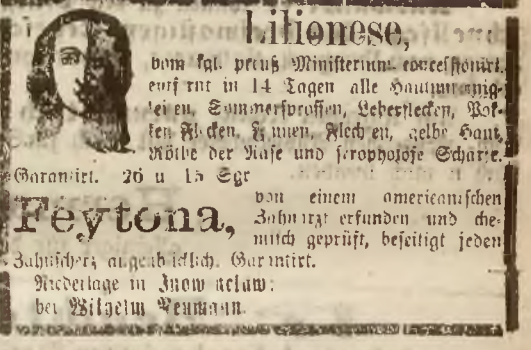 Lilionese,
vom kgl. preuß Ministerium concessionirt.
entf rnt in 14 Tagen alle Hautunreinig-
kei en, Sommersprossen, Leberflecken, Pok-
ken Fl cken, F nnen, Flech en, gelbe Haut,
Röthe der Nase und scrophulöse Schärfe.
Garantirt. 26 u 15 Sgr
Feytona,
von einem americanischen
Zahnarzt erfunden und che-
misch geprüft, beseitigt jeden
Zahnscherz augenblicklich. Garantirt.
Niederlage in Inow aclaw:
bei Wilhelm Neumann.